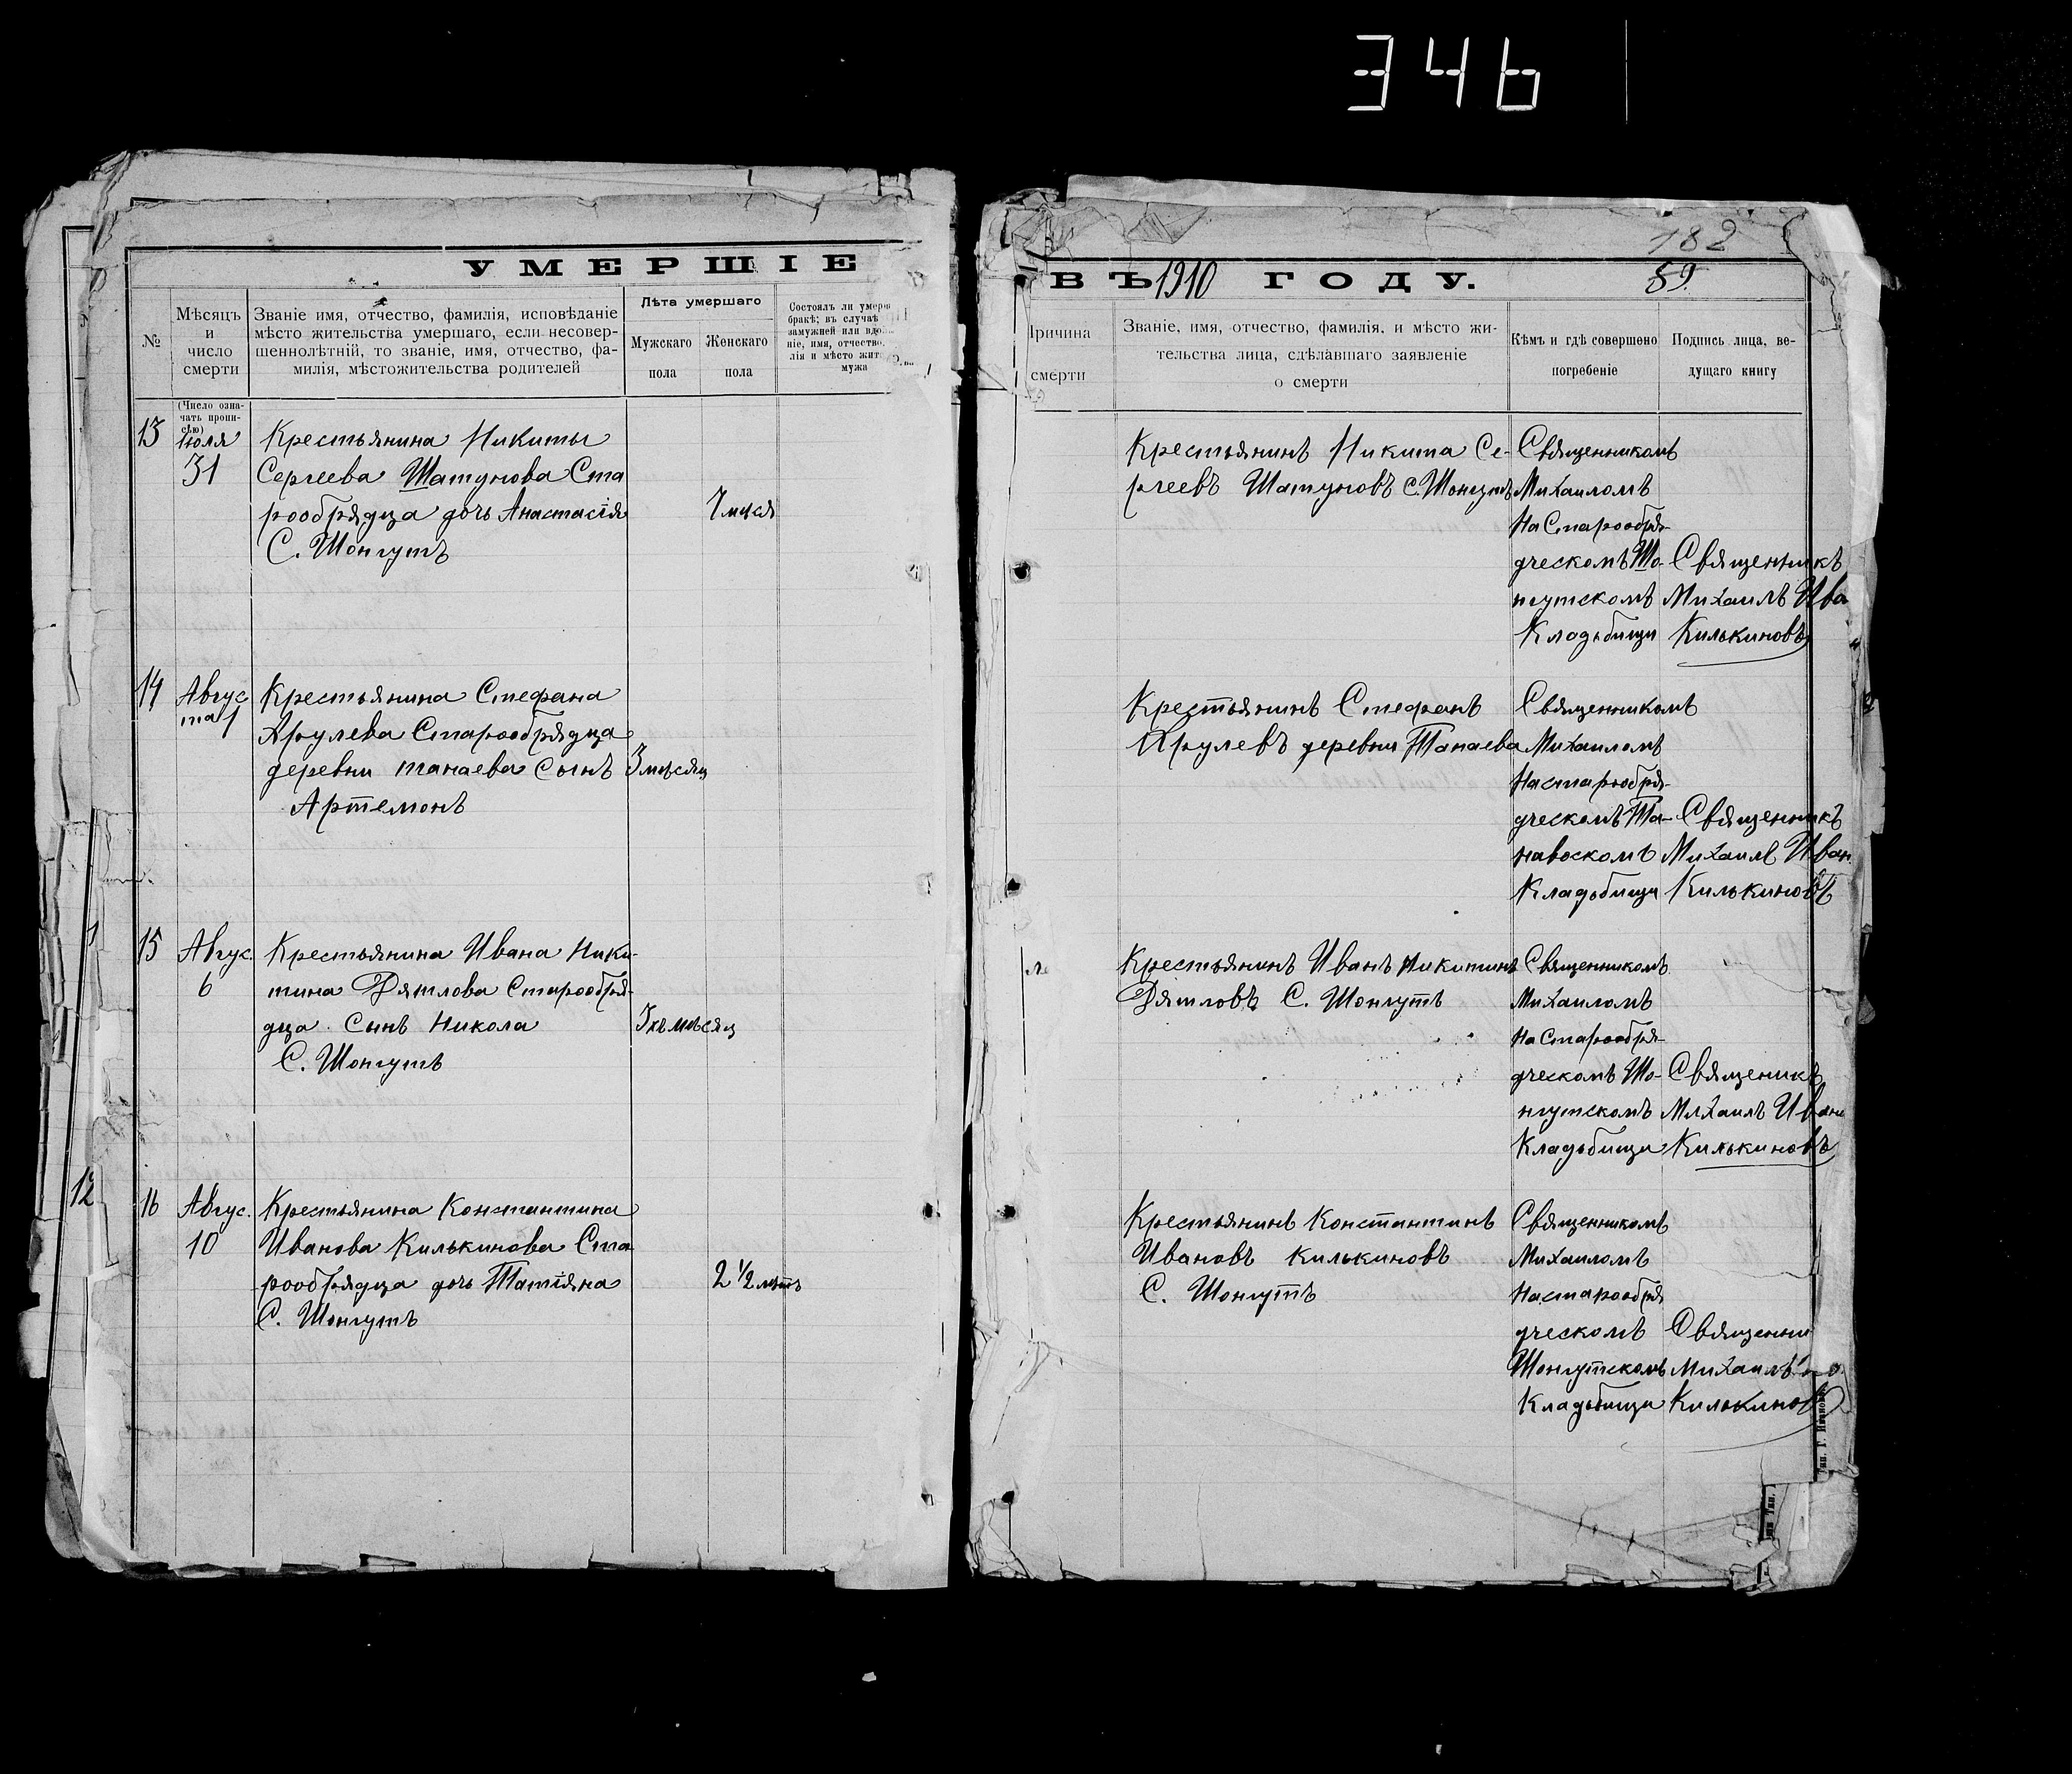 346
182
УМЕРШІЕ
ВЪ 1910 ГОДУ.
59.
№
Мѣсяцъ
и
число
смерти
Званіе имя, отчество, фамилія, исповѣданіе
мѣсто жительства умершаго, если несовер-
шеннолѣтній, то званіе, имя, отчество, фа-
милія, мѣстожительства родителей
Лѣта умершаго
Мужскаго
пола
Женскаго
пола
Состоялъ ли умерш
бракѣ; въ случаѣ
замужней или вдо
ніе, имя, отчество,
лія и мѣсто жит
мужа
Причина
смерти
Званіе, имя, отчество, фамилія, и мѣсто жи-
тельства лица, сдѣлавшаго заявленіе
о смерти
Кѣмъ и гдѣ совершено
погребеніе
Подпись лица, ве-
дущаго книгу
(Число озна-
чать пропи-
сью)
13
Июля
31
Крестьянина Никиты
Сергеева Шатунова Ста
рообрядца дочь Анастасія
С. Шонгутъ
7 мцся
Крестьянинъ Никита Се-
ргеевъ Шатуновъ С. Шонгутъ
Священникомъ
Михаиломъ
На Старообря-
дческомъ Шо-
нгутскомъ
Кладьбищи
Священникъ
Михаилъ Ива
Килькиновъ
14
Авгус
та 1
Крестьянина Стефана
Арулева Старообрядца
деревни танаева Сынъ
Артемонъ
3 мѣсяц
Крестьянинъ Стефанъ
Арулевъ деревни Танаева
Священникомъ
Михаиломъ
На старообря-
дческомъ Та-
навоскомъ
Кладьбищи
Священникъ
Михаилъ Иван
Килькиновъ
15
Авгус.
6
Крестьянина Ивана Ники-
тина Дятлова Старообря-
дца. Сынъ Никола
С. Шонгутъ
3хъ мѣсяц
Крестьянинъ Иванъ Никитинъ
Дятловъ С. Шонгутъ
Священникомъ
Михаиломъ
На Старообря-
дческомъ Шо-
нгутскомъ
Кладьбищи
Священикъ
Михаилъ Иване
Килькиновъ
12
16
Авгус.
10
Крестьянина Константина
Иванова Килькинова Ста
рообрядца дочь Татіяна
С. Шонгутъ
2 1/2 лѣтъ
Крестьянинъ Константинъ
Ивановъ Килькиновъ
С. Шонгутъ
Священникомъ
Михаиломъ
На старообря
дческомъ
Шонгутскомъ
Кладьбищи
Священни
Михаилъ
Килькинов
Тип. Г. Иванова